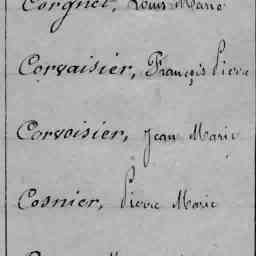 Corgnet, Louis Marie
Corvaisier, François Pierre
Corvoisier, Jean Marie
Cosnier, Pierre Marie